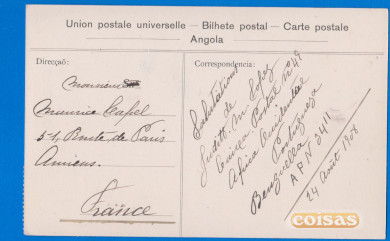 Union postale universelle — Bilhete postal — Carte postale
Angola
Direcção:
Correspondencia:
Monsieur
Maurice Capel
51, Route de Paris
Amiens.
France
Salutations
de
Judith M. Lopes
Caixa Postal Nº 49
Africa Occidental
Portugueza
Benguella
A P N 2411
24 Août 1908
coisas